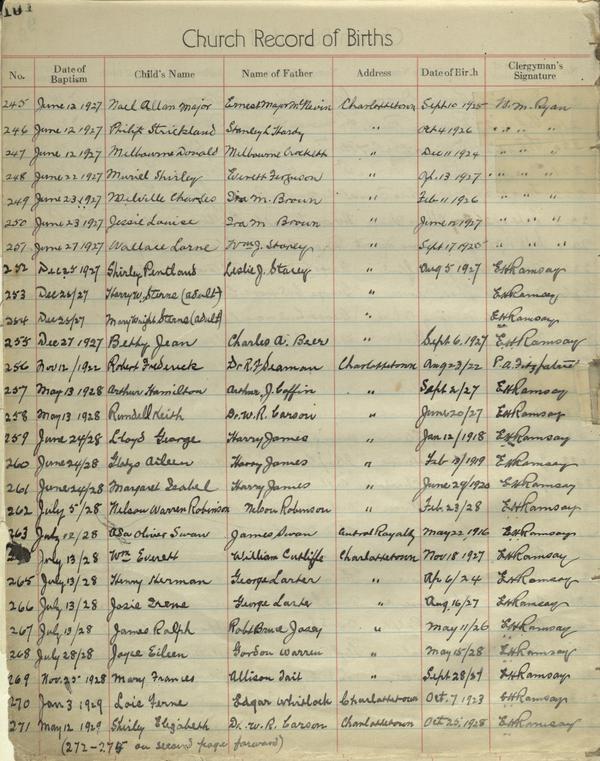 101
Church Record of Births
No. Date of Baptism Child's Name Name of Father Address Date of Birth Clergyman's Signature
245 June 12 1927 Nael Allan Major Ernest Major McNevin Charlottetown Sept 10 1925 W. M. Ryan
246 June 12 1927 Philip Strickland Stanley L Hardy " Oct 4 1926 " " " "
247 June 12 1927 Milbourne Donald Milbourne Crockett " Dec 11 1924 " " "
248 June 22 1927 Muriel Shirley Everett Ferguson " Apl. 13 1927 " " "
249 June 23 1927 Melville Charles Ira M. Brown " Feb 11 1926 " " "
250 June 23 1927 Jessie Louise Ira M. Brown " June 12 1927 " " "
251 June 27 1927 Wallace Lorne Wm J. Storey " Sept 17 1925 " " "
252 Dec 25 1927 Shirley Pentland Leslie J. Stavey " Aug 5 1927 EHRamsay
253 Dec 25/27 Harry W. Sterns (adult) " EHRamsay
254 Dec 25/27 Mary Wright Sterns (adult) " EHRamsay
255 Dec 27 1927 Betty Jean Charles A. Beer Sept 6, 1927 EHRamsay
256 Nov 12/1922 Robert Frederick Dr R F Seaman Charlottetown Aug 23/22 P. A. Fitzpatrick
257 May 13 1928 Arthur Hamilton Arthur J. Coffin " Sept 2/27 EHRamsay
258 May 13 1928 Rundell Keith Dr. W. R. Carson " June 20/27 EHRamsay
259 June 24/28 Lloyd George Harry James " Jan 12/1918 EHRamsay
260 June 24/28 Gladys Aileen Harry James " Feb 1919 EHRamsay
261 June 24/28 Margaret Isabel Harry James " June 29/1920 EHRamsay
262 July 5/28 Nelson Warren Robinson Nelson Robinson " Feb. 23/28 EHRamsay
263 July 12/28 Asa Oliver Swan James Swan Central Royalty May 22 1916 EHRamsay
July 13/28 Wm Everett William Cutliffe Charlottetown Nov 18 1927 EHRamsay
265 July 13/28 Henry Herman George Larter " Ap 6/24 EHRamsay
266 July 13/28 Josie Irene George Larter " Aug. 16/27 EHRamsay
267 July 13/28 James Ralph Robt Bruce Josey " May 11/26 EHRamsay
268 July 28/28 Joyce Eileen Gordon Warren " May 15/28 EHRamsay
269 Nov. 25 1928 Mary Frances Allison Tait " Sept 28/27 EHRamsay
270 Jan 3 1929 Lois Ferne Edgar Whitlock Charlottetown Oct. 7 1923 EHRamsay
271 May 12 1929 Shirley Elizabeth Dr. W. R. Carson Charlottetown Oct 25, 1928 EHRamsay
(272-275 on second page forward)